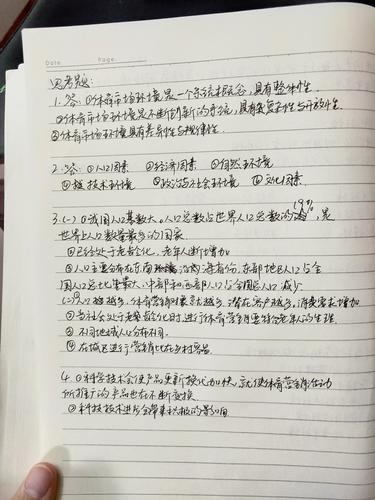 Date    Page
思考题:
1.答:①体育市场环境是一个系统概念,具有整体性.
②体育市场环境是不断创新的系统,具有复杂性与开放性
③体育市场环境具有差异性与规律性.
2.答:①人口因素 ②经济因素 ③自然环境
④科技技术环境 ⑤政治与社会环境 ⑥文化因素.
19%
3.(一)①我国人口基数大。人口总数占世界人口总数的,是
世界上人口数量最多的国家.
②已经处于老龄化,老年人断增加
③人口主要分布在东南沿海省份,东部地区人口占全
国人口总比重最大,中部和西部人口占全国总人口减少
(二)①人口越多,体育营销对象就越多,潜在客户越多,消费需求增加
②当社会处于老龄化时,进行体育营销更符合老年人的生理.
③不同地域人口分布不同.
④在城区进行营销比在乡村容易.
4.①科学技术会使产品更新换代加快,就使体育营销活动
所推广的产品也在不断变换.
②科技技术进步会带来积极的影响